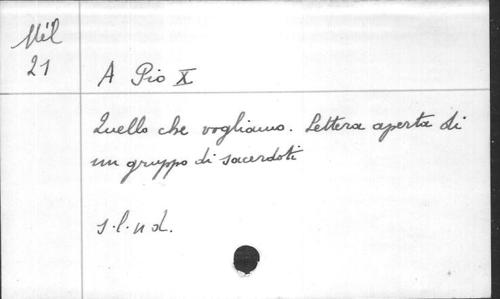 Mél
21
A Pio X
Quello che vogliamo. Lettera aperta di
un gruppo di sacerdoti
s.l.n d.